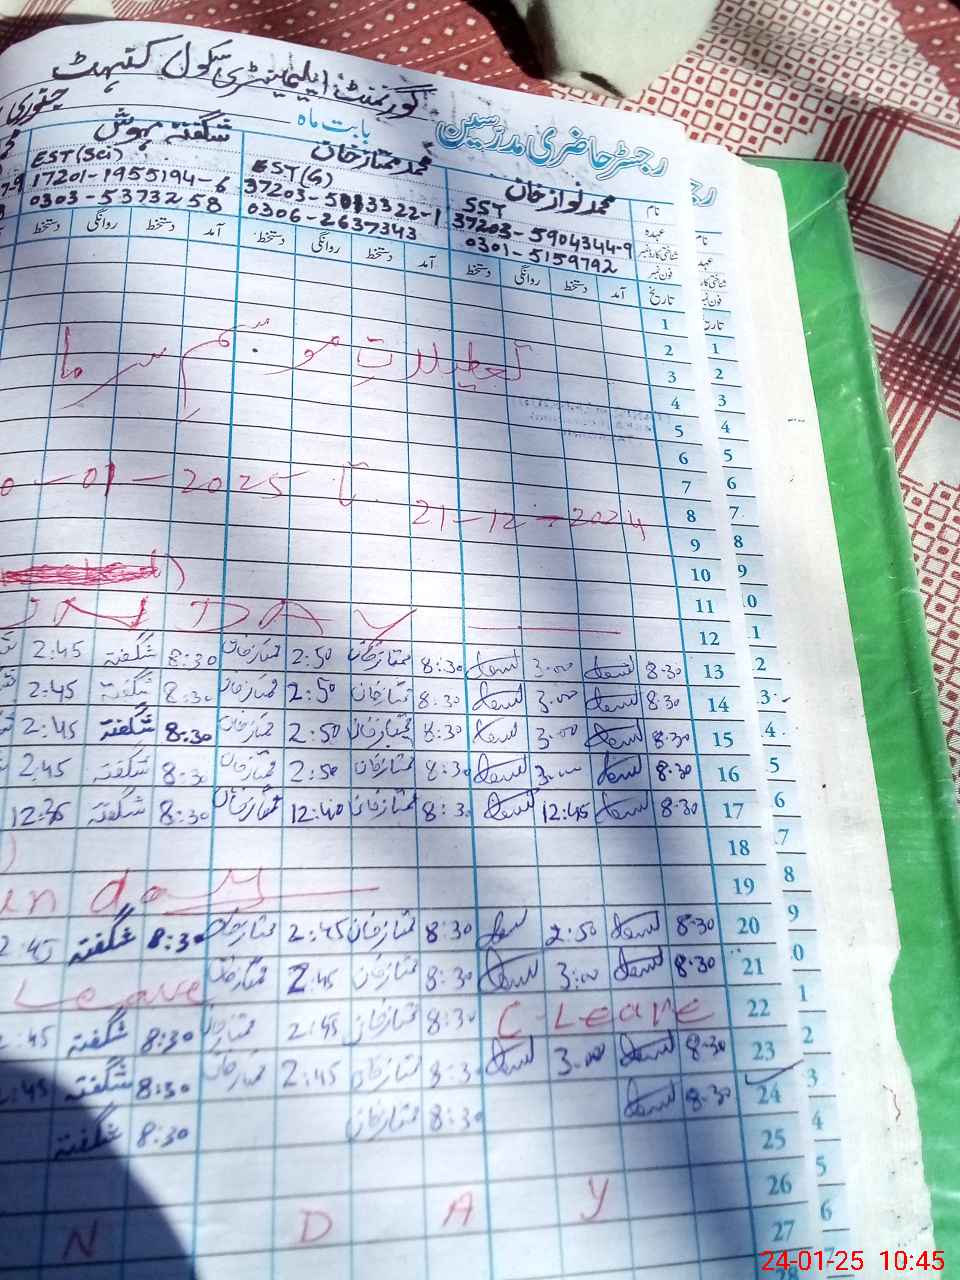 گورنمنٹ ایلیمینٹری سکول کتہٹ
رجسٹر حاضری مدرسین بابت ماہ جنوری
نام محمد نواز خان محمد ممتاز خان شگفتہ مہوش
عہدہ SST EST(G) EST(Sci)
شناختی کارڈ نمبر 37203-5904344-9 37203-5083322-1 17201-1955194-6
فون نمبر 0301-5159792 0306-2637343 0303-5373258
تاریخ آمد دستخط روانگی دستخط آمد دستخط روانگی دستخط آمد دستخط روانگی دستخط
1
2
تعطیلات موسم سرما
3
4
5
6
7
21-12-2024 تا 0-01-2025
8
9
10
11
UNDAY
12
13 8.30 3.00 8:30 ممتاز خان 2:50 ممتاز خان 8:30 شگفتہ 2:45
14 8.30 3.00 8:30 ممتاز خان 2:50 ممتاز خان 8:30 شگفتہ 2:45
15 8.30 3.00 8:30 ممتاز خان 2:50 ممتاز خان 8:30 شگفتہ 2:45
16 8.30 3.00 8:30 ممتاز خان 2:50 ممتاز خان 8:30 شگفتہ 2:45
17 8.30 12:45 8:30 ممتاز خان 12:40 ممتاز خان 8:30 شگفتہ 12:35
18
19 unday
20 8.30 2:50 8:30 ممتاز خان 2:45 ممتاز خان 8:30 شگفتہ 2:45
21 8.30 3:00 8:30 ممتاز خان 2:45 ممتاز خان Leave
22 C-Leave 8:30 ممتاز خان 2:45 ممتاز خان 8:30 شگفتہ 2:45
23 8.30 3.00 8:30 ممتاز خان 2:45 ممتاز خان 8:30 شگفتہ 2:45
24 8.30 8:30 ممتاز خان 8:30 شگفتہ
25
26 N D A Y
27
28
24-01-25 10:45